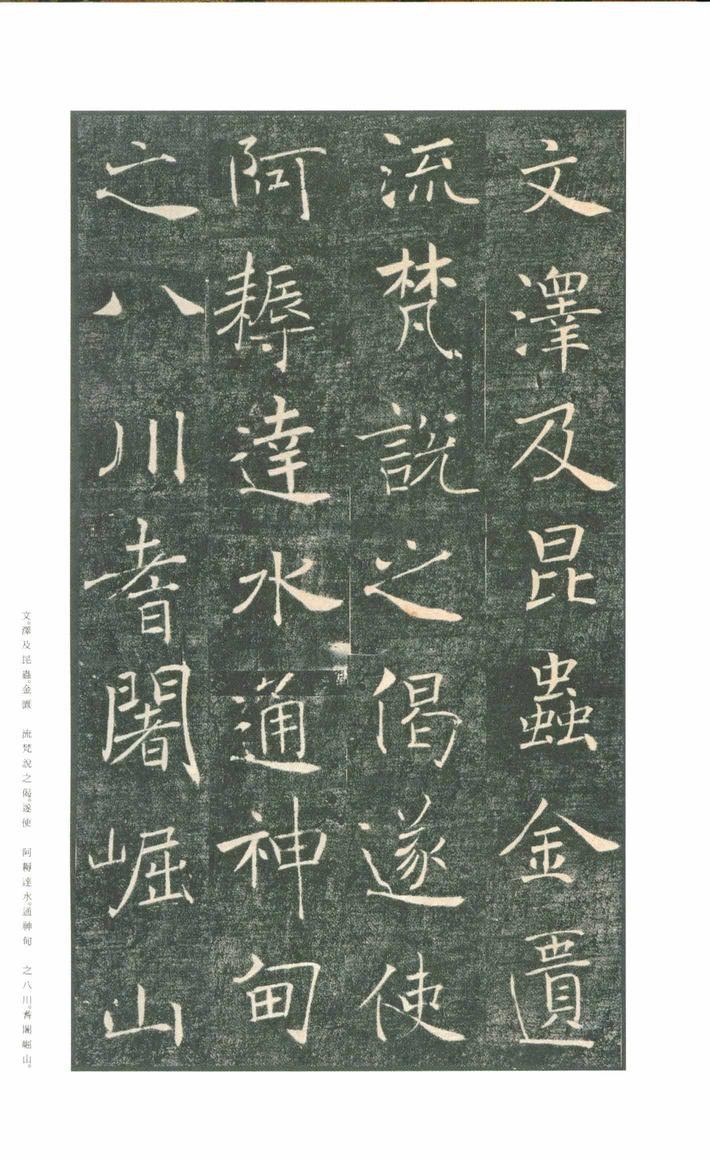 文澤及昆蟲金匱
流梵說之偈遂使
阿耨達水通神甸
之八川耆闍崛山
文。澤及昆蟲。金匱　流梵說之偈。遂使　阿耨達水。通神甸　之八川。耆闍崛山。